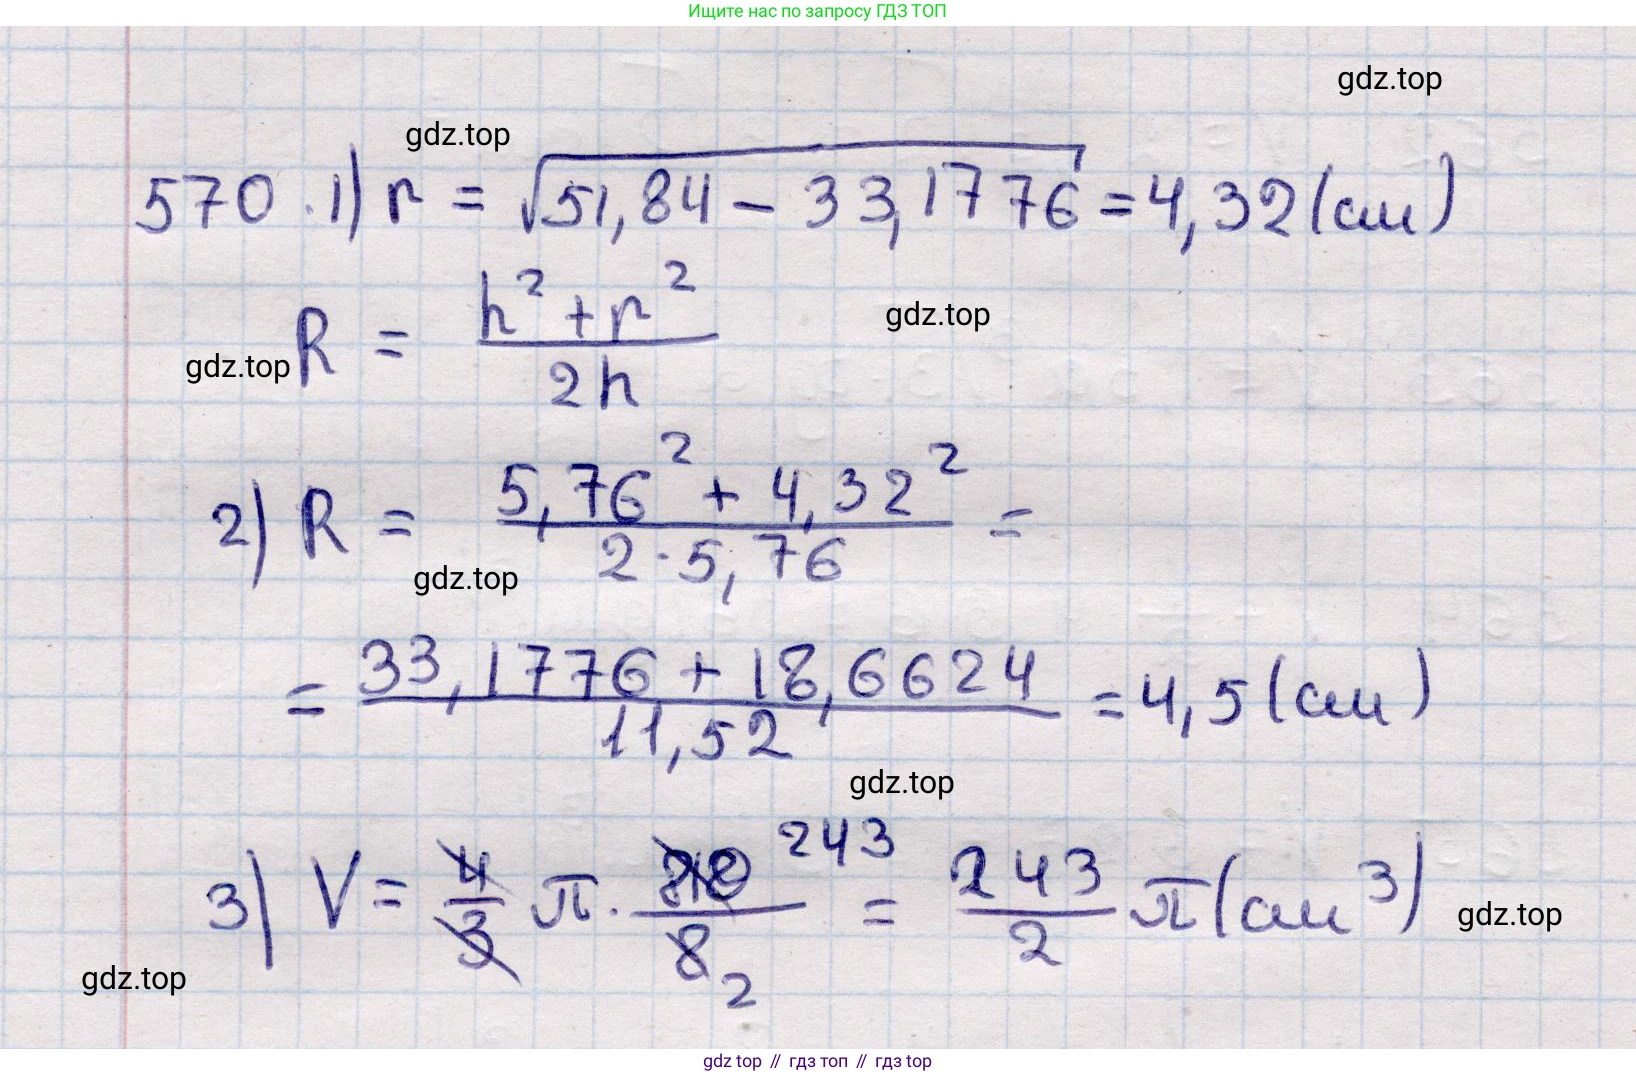 Ищите нас по запросу ГДЗ ТОП
gdz.top
gdz.top
570. 1) r = √51,84 − 33,1776 = 4,32 (см)
gdz.top
R = h² + r² / 2h
gdz.top
2) R = 5,76² + 4,32² / 2 · 5,76 =
gdz.top
= 33,1776 + 18,6624 / 11,52 = 4,5 (см)
gdz.top
3) V = 4/3 π · 243 / 8 2 = 243/2 π (см³)
gdz.top
gdz.top
gdz top // гдз топ // гдз top